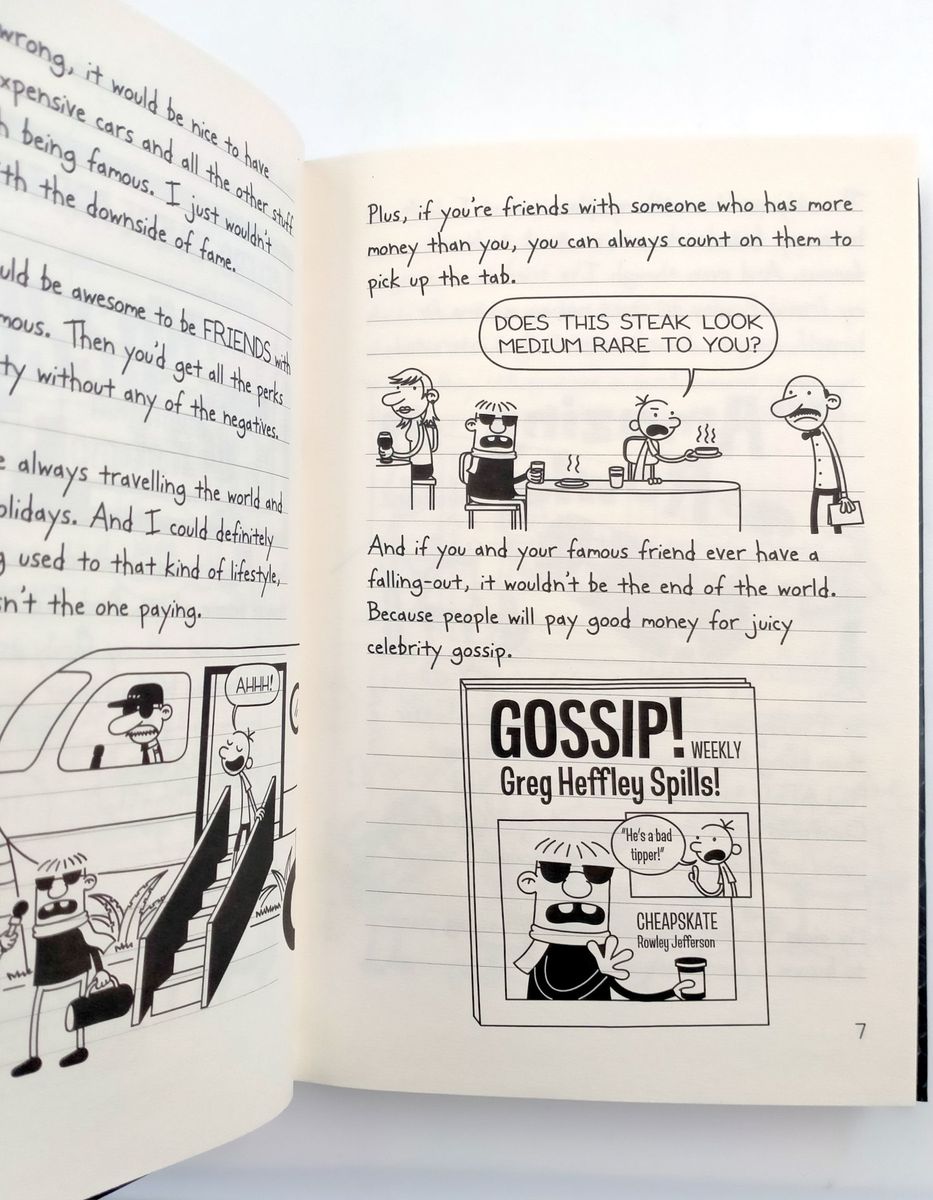 wrong, it would be nice to have
expensive cars and all the other stuff
being famous. I just wouldn't
the downside of fame.
be awesome to be FRIENDS with
Then you'd get all the perks
without any of the negatives.
always travelling the world and
And I could definitely
used to that kind of lifestyle,
the one paying.
AHHH!
Plus, if you're friends with someone who has more
money than you, you can always count on them to
pick up the tab.
DOES THIS STEAK LOOK
MEDIUM RARE TO YOU?
And if you and your famous friend ever have a
falling-out, it wouldn't be the end of the world.
Because people will pay good money for juicy
celebrity gossip.
GOSSIP!
WEEKLY
Greg Heffley Spills!
"He's a bad
tipper!"
CHEAPSKATE
Rowley Jefferson
7